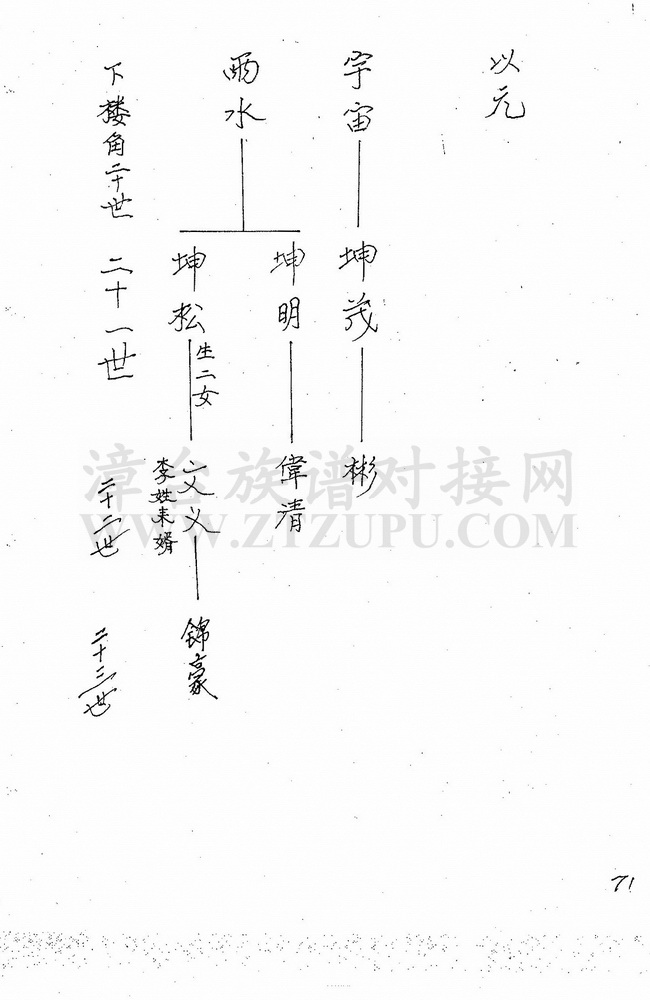 以元
宇宙
坤茂
彬
雨水
坤明
偉清
坤松
生二女
文义
李姓来婿
錦豪
下楼角二十世
二十一世
二十二世
二十三世
71
漳台族谱对接网
WWW.ZTZUPU.COM